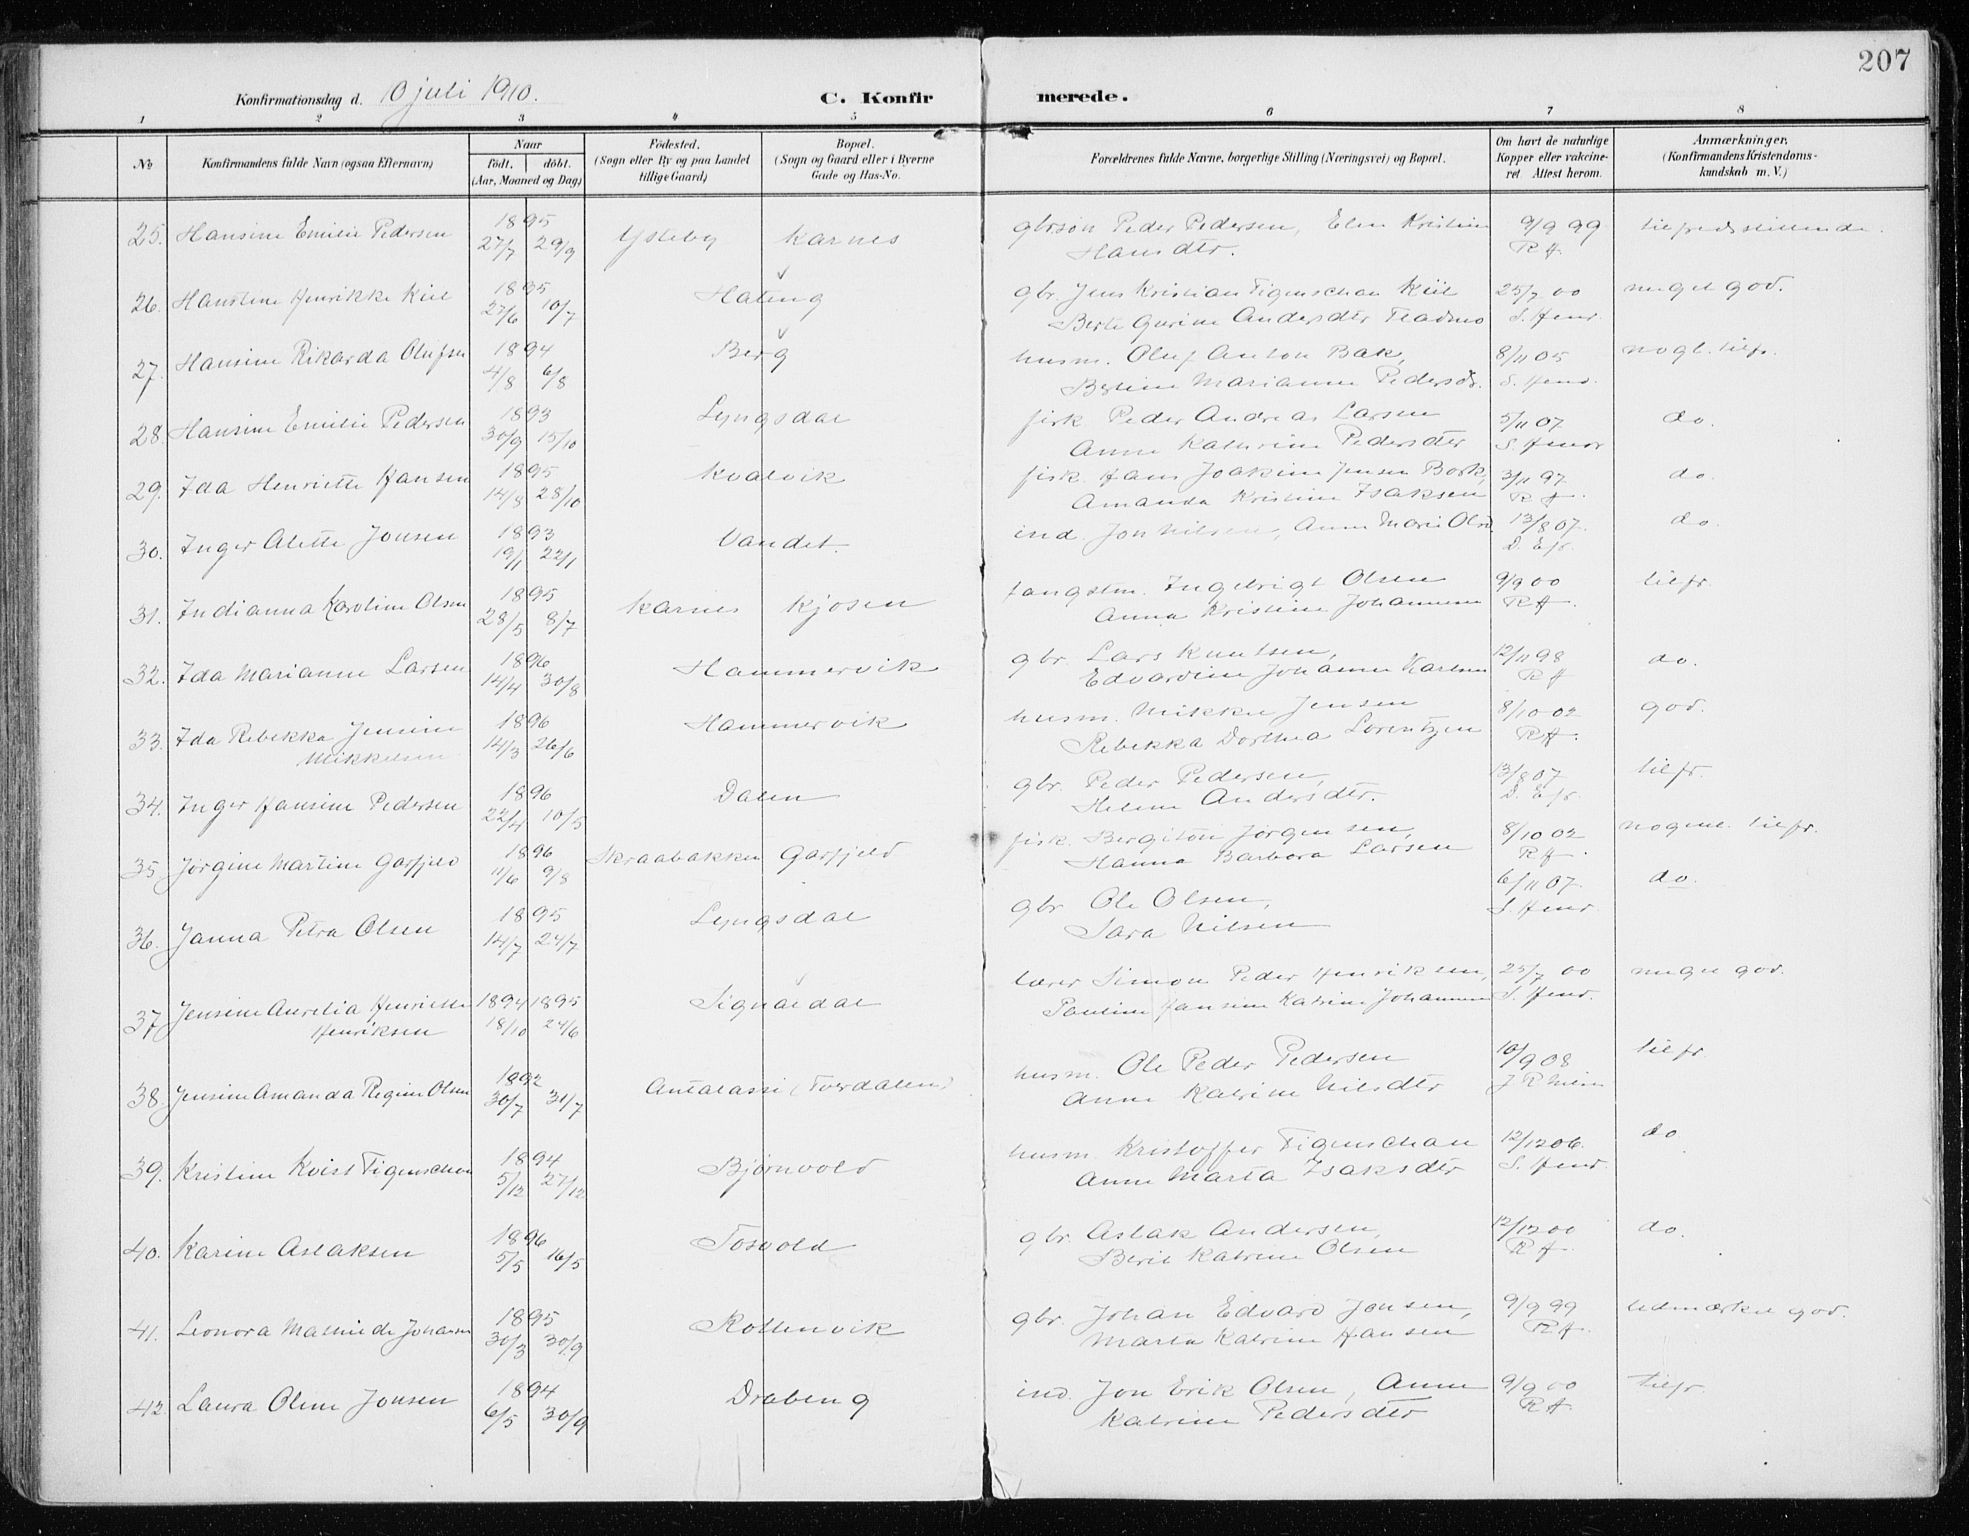 207
Konfirmationsdag d. 10 juli 1910.
C. Konfirmerede.
1 2 3 4 5 6 7 8
No
Konfirmandens fulde Navn (ogsaa Efternavn)
Naar
født. døbt.
(Aar, Maaned og Dag)
Fødested.
(Sogn eller By og paa Landet
tillige Gaard)
Bopæl.
(Sogn og Gaard eller i Byerne
Gade og Hus-No.
Forældrenes fulde Navne, borgerlige Stilling (Næringsvei) og Bopæl.
Om havt de naturlige
Kopper eller vakcine-
ret. Attest herom.
Anmærkninger.
(Konfirmandens Kristendoms-
kundskab m. V.)
25. Hansine Emilie Pedersen 1895 27/7 29/9 Ysteby Karnes gbrsøn Peder Pedersen, Elen Kristine 9/9 99 tilfredsstillende.
Hansdtr. RH
26. Hanstine Henrikke Kiil 1895 27/6 10/7 Hateng gbr. Jens Kristian Figenschau Kiil 25/7 00 meget god.
Berte Gurine Andersdtr S. Henr.
27. Hansine Rikarda Olufsen 1894 4/8 6/8 Berg husm. Oluf Anton Bak, 8/11 05 nogl. tilfr.
Bertine Marianne Pedersdr. S. Henr.
28. Hansine Emilie Pedersen 1893 30/9 15/10 Lyngsdal fisk Peder Andreas Larsen 5/11 07 do.
Anne Kathrine Pedersdtr S. Henr
29. Ida Henriette Hansen 1895 14/8 28/10 Kvalvik fisk. Hans Joakim Jensen Bork, 3/11 97 do.
Amanda Kristine Isaksen RH.
30. Inger Alette Jonsen 1893 19/1 22/1 Vandet. ind. Jon Nilsen, Anne Marie Olsd. 13/8 07. do.
D. Efr.
31. Indianna Karoline Olsen 1895 28/5 8/7 Karnes Kjosen Ingebrigt Olsen 9/9 00 tilfr.
Anna Kristine Johannesen RH.
32. Ida Marianne Larsen 1896 14/4 30/8 Hammervik gbr. Lars Knutsen, 12/11 98 do.
Edvardine Johanna Karlsen RH
33. Ida Rebekka Jensine 1896 14/3 26/6 Hammervik husm. Mikkel Jensen 8/10 02 god.
Mikkelsen Rebekka Dorthea Lorentzen RH.
34. Inger Hansine Pedersen 1896 22/4 10/5 Dalen gbr. Peder Pedersen, 13/8 07 tilfr.
Helene Andersdtr. D. Efr.
35. Jørgine Martine Garfjeld 1896 11/6 9/8 Skraabakken Garfjeld fisk. Bergiton Jørgensen, 8/10 02 nogenl. tilfr.
Hanna Barbara Larsen RH.
36. Janna Petra Olsen 1895 14/7 24/7 Lyngsdal gbr Ole Olsen, 6/11 07. do.
Sara Nilsen S. Henr
37. Jensine Aurelia Henriette 1894 1895 18/10 24/6 Signaldal lærer Simon Peder Henriksen, 25/7 00 meget god.
Henriksen Pauline Hansine Katrine Johannesen S. Henr.
38. Jensine Amanda Regine Olsen 1892 30/7 31/7 husm. Ole Peder Pedersen 10/9 08 tilfr
Anne Katrine Nilsdtr J R Nilsen
39. Kristine Kvist Figenschau 1894 5/12 27/12 Bjørnvold husm. Kristoffer Figenschau 12/12 06. do
Anne Marta Isaksdtr S. Henr.
40. Karine Aslaksen 1896 5/5 16/5 Tosvold gbr. Aslak Andersen, 12/12 00 do.
Berit Katrine Olsen RH.
41. Leonora Mathilde Johansen 1895 30/3 30/9 Rottenvik gbr. Johan Edvard Jonsen, 9/9 99 udmærket god.
Marta Katrine Hansen RH.
42. Laura Oline Jonsen 1894 6/5 30/9 Drabeng ind. Jon Erik Olsen, Anne 9/9 00 tilfr.
Katrine Pedersdtr RH